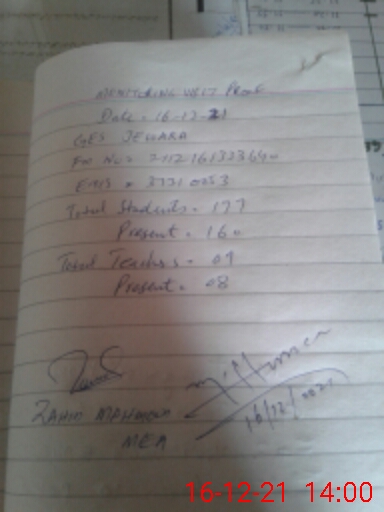 MONITORING VISIT Proof
Date - 16-12-21
GES JEWARA
EMIS # 37310053
Total Students - 177
Present - 160
Total Teachers - 09
Present - 08
ZAHID MAHMOOD
MEA
16/12/2021
16-12-21 14:00